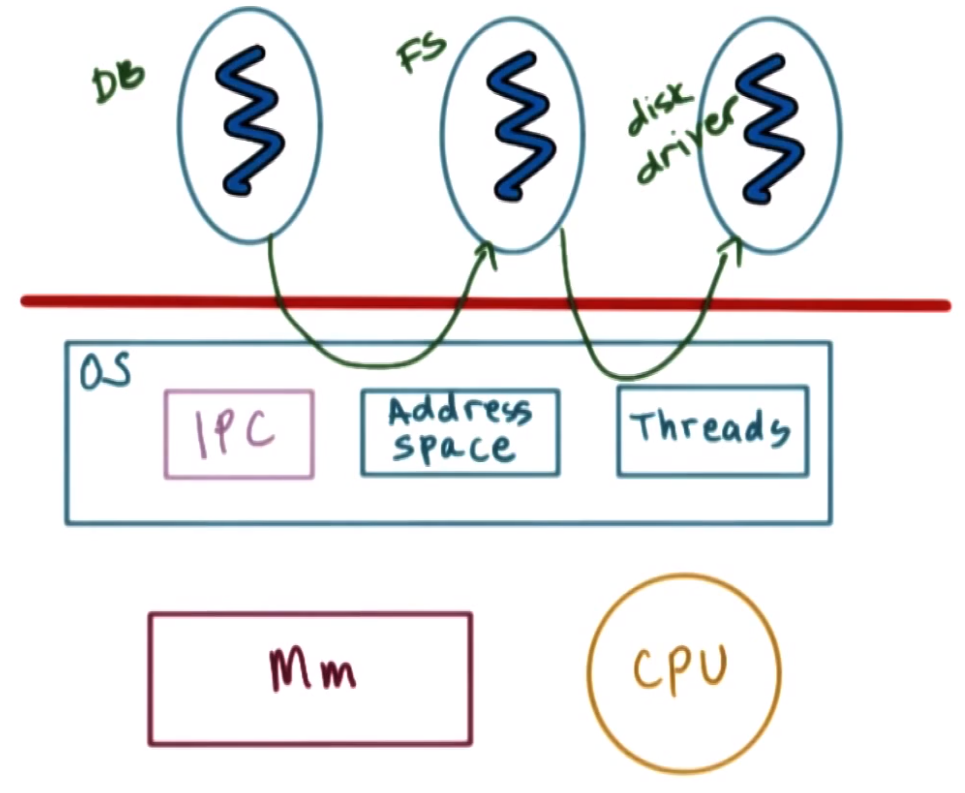 DB
FS
disk
driver
OS
IPC
Address
space
Threads
Mm
CPU